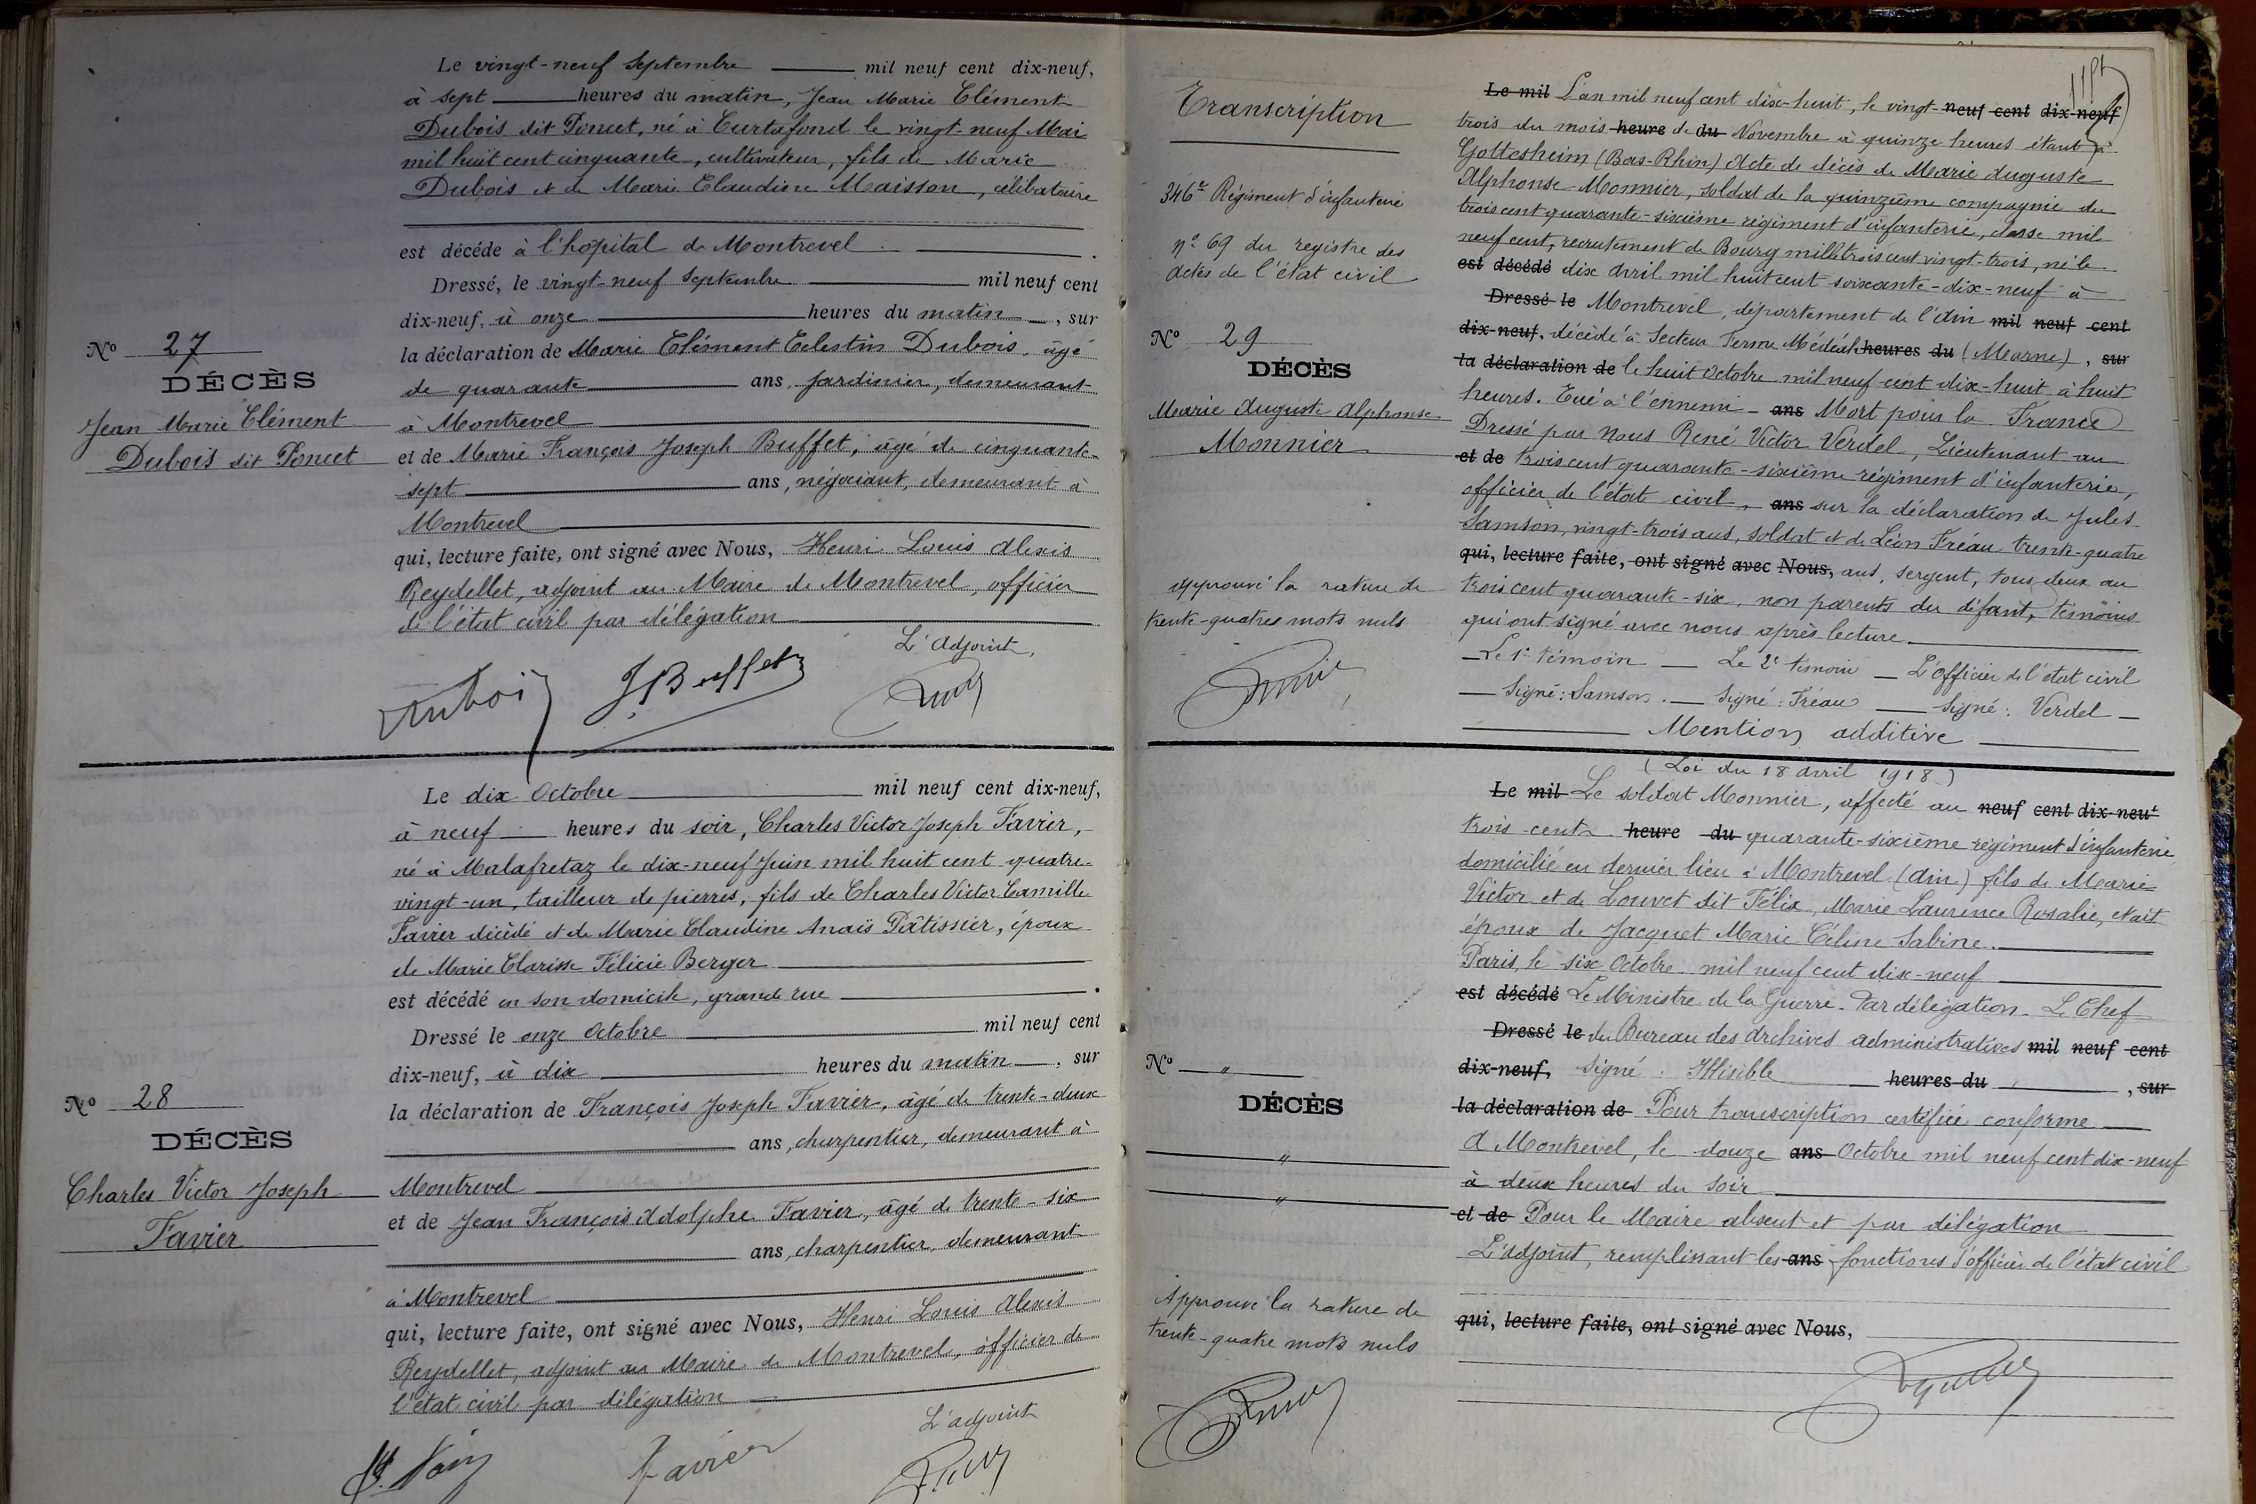 Le vingt-neuf Septembre mil neuf cent dix-neuf,
à sept heures du matin, Jean Marie Clément
Dubois dit Poncet, né à Curtafond le vingt-neuf Mai
mil huit cent cinquante, cultivateur, fils de Marie
Dubois et de Marie Claudine Maisson, célibataire
est décédé à l'hôpital de Montrevel.
Dressé, le vingt-neuf Septembre mil neuf cent
dix-neuf, à onze heures du matin, sur
la déclaration de Marie Clément Celestin Dubois, âgé
de quarante ans, jardinier, demeurant
à Montrevel
et de Marie François Joseph Buffet, âgé de cinquante-
sept ans, négociant, demeurant à
Montrevel
qui, lecture faite, ont signé avec Nous, Henri Louis Alexis
Reydellet, adjoint au Maire de Montrevel, officier
de l'état civil par délégation
L'Adjoint,
Dubois J Buffet
No 27
DÉCÈS
Jean Marie Clément
Dubois dit Poncet
Le dix Octobre mil neuf cent dix-neuf,
à neuf heures du soir, Charles Victor Joseph Favier,
né à Malafretaz le dix-neuf Juin mil huit cent quatre-
vingt-un, tailleur de pierres, fils de Charles Victor Camille
Favier décédé et de Marie Claudine Anaïs Pâtissier, époux
de Marie Clarisse Félicie Berger
est décédé en son domicile, grande rue.
Dressé le onze Octobre mil neuf cent
dix-neuf, à dix heures du matin, sur
la déclaration de François Joseph Favier, âgé de trente-deux
ans, charpentier, demeurant à
Montrevel
et de Jean François Adolphe Favier, âgé de trente-six
ans, charpentier, demeurant
à Montrevel
qui, lecture faite, ont signé avec Nous, Henri Louis Alexis
Reydellet, adjoint au Maire de Montrevel, officier de
l'état civil par délégation
L'adjoint
Favier
No 28
DÉCÈS
Charles Victor Joseph
Favier
Transcription
346e Régiment d'infanterie
no 69 du registre des
actes de l'état civil
No 29
DÉCÈS
Marie Auguste Alphonse
Monnier
approuvé la rature de
trente-quatres mots nuls
Le mil L'an mil neuf cent dix-huit, le vingt- neuf cent dix-neuf
trois du mois heure de du Novembre à quinze heures étant à
Gottesheim (Bas-Rhin) Acte de décès de Marie Auguste
Alphonse Monnier, soldat de la quinzième compagnie du
trois cent quarante-sixième régiment d'infanterie, classe mil
neuf cent, recrutement de Bourg mille trois cent vingt-trois, né le
est décédé dix Avril mil huit cent soixante-dix-neuf à
Dressé le Montrevel, département de l'Ain mil neuf cent
dix-neuf, décédé à Secteur Ferme Médéah heures du (Marne), sur
la déclaration de le huit Octobre mil neuf cent dix-huit à huit
heures. Tué à l'ennemi - ans Mort pour la France
Dressé par Nous René Victor Verdel, Lieutenant au
et de trois cent quarante-sixième régiment d'infanterie,
officier de l'état civil, ans sur la déclaration de Jules
Samson, vingt-trois ans, soldat et de Léon Fréau trente-quatre
qui, lecture faite, ont signé avec Nous, ans, sergent, tous deux au
trois cent quarante-six, non parents du défunt, témoins
qui ont signé avec nous après lecture.
Le 1er témoin — Le 2e témoin — L'officier de l'état civil
— Signé: Samson. — Signé: Fréau — Signé: Verdel —
Mention additive
(Loi du 18 Avril 1918)
Le mil Le soldat Monnier, affecté au neuf cent dix-neuf
trois-cent heure du quarante-sixième régiment d'infanterie
domicilié en dernier lieu à Montrevel (Ain) fils de Marie
Victor et de Louvet dit Félix, Marie Laurence Rosalie, était
époux de Jacquet Marie Céline Sabine.
Paris, le six Octobre mil neuf cent dix-neuf
est décédé Le Ministre de la Guerre. Par délégation. Le Chef
Dressé le du Bureau des Archives administratives mil neuf cent
dix-neuf, signé: Illisible heures du , sur
la déclaration de Pour transcription certifiée conforme
A Montrevel, le douze ans Octobre mil neuf cent dix-neuf
à deux heures du soir
et de Pour le Maire absent et par délégation
L'adjoint, remplissant les ans fonctions d'officier de l'état civil
qui, lecture faite, ont signé avec Nous,
No "
DÉCÈS
"
"
Approuvé la rature de
trente-quatre mots nuls